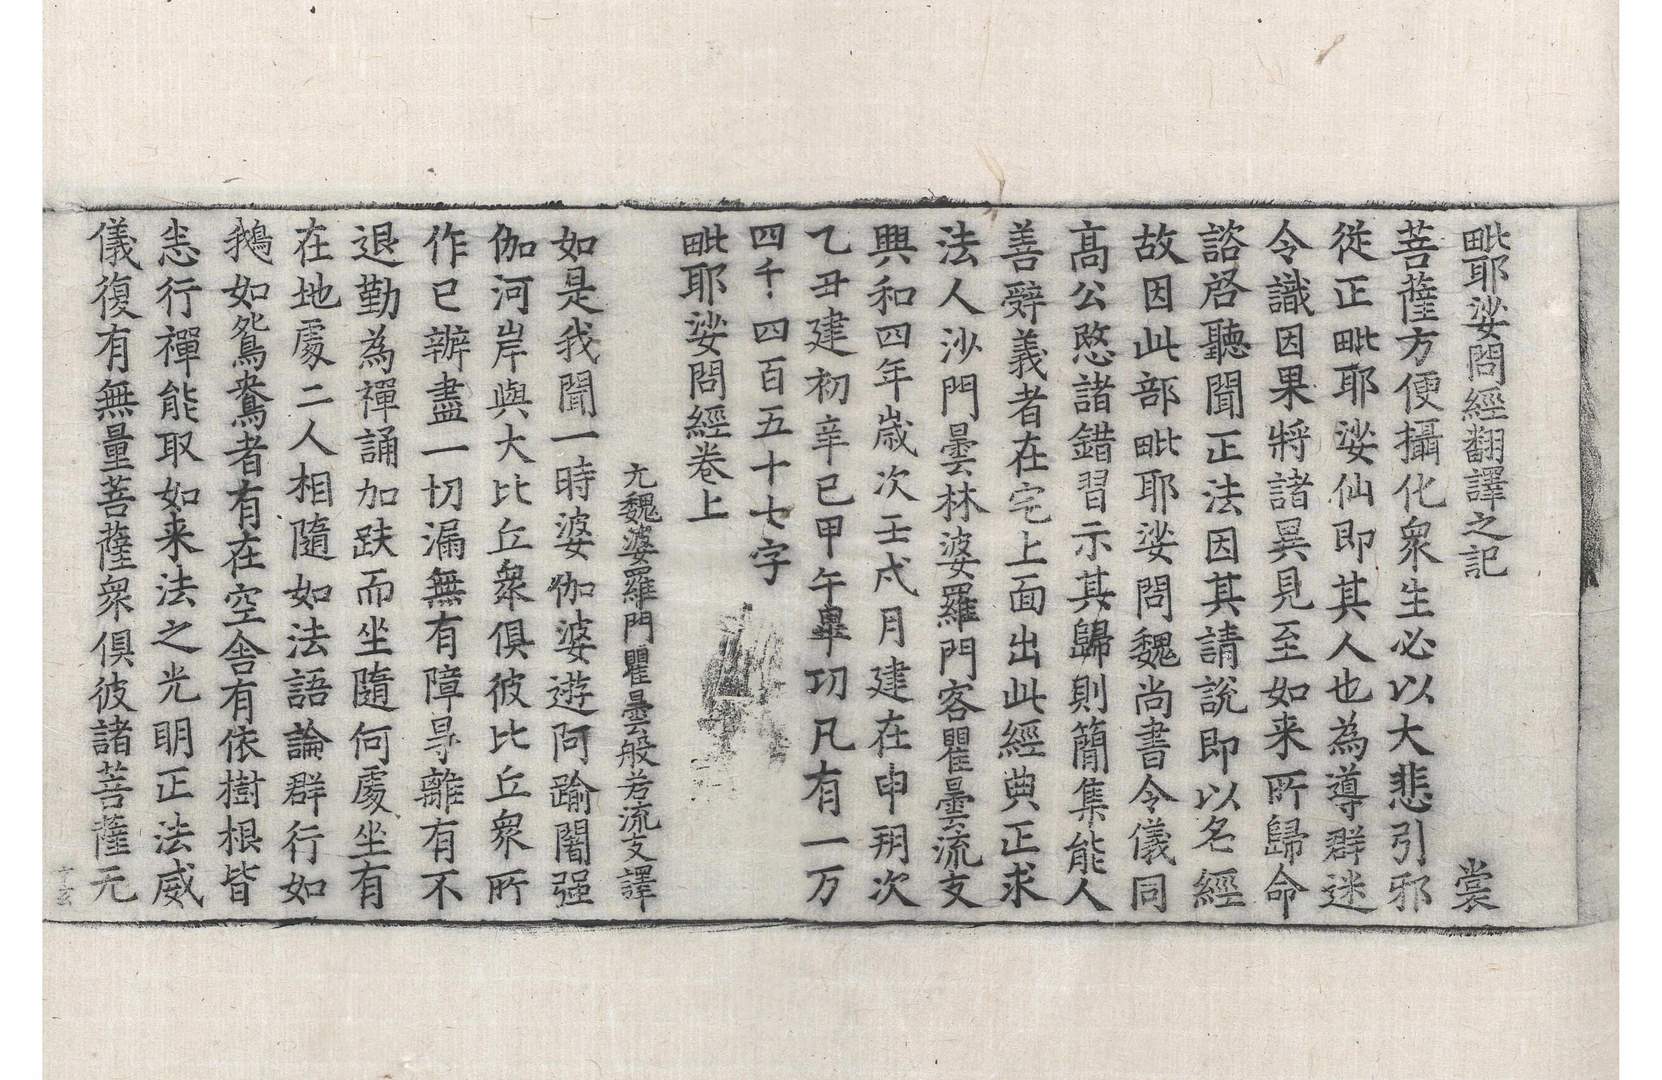 毗耶娑問經翻譯之記　裳
菩薩方便攝化衆生必以大悲引邪
從正毗耶娑仙即其人也為導群迷
令識因果將諸異見至如来所歸命
諮啓聽聞正法因其請說即以名經
故因此部毗耶娑問魏尚書令儀同
髙公愍諸錯習示其歸則簡集能人
善辭義者在宅上面出此經典正求
法人沙門曇林婆羅門客瞿曇流支
興和四年歲次壬戌月建在申朔次
乙丑建初辛巳甲午畢功凡有一万
四千四百五十七字
毗耶娑問經卷上
元魏婆羅門瞿曇般若流支譯
如是我聞一時婆伽婆遊阿踰闍强
伽河岸與大比丘衆俱彼比丘衆所
作已辦盡一切漏無有障㝵離有不
退勤為禪誦加趺而坐隨何處坐有
在地處二人相隨如法語論群行如
鵝如鴛鴦者有在空舍有依樹根皆
悉行禪能取如来法之光明正法威
儀復有無量菩薩衆俱彼諸菩薩元